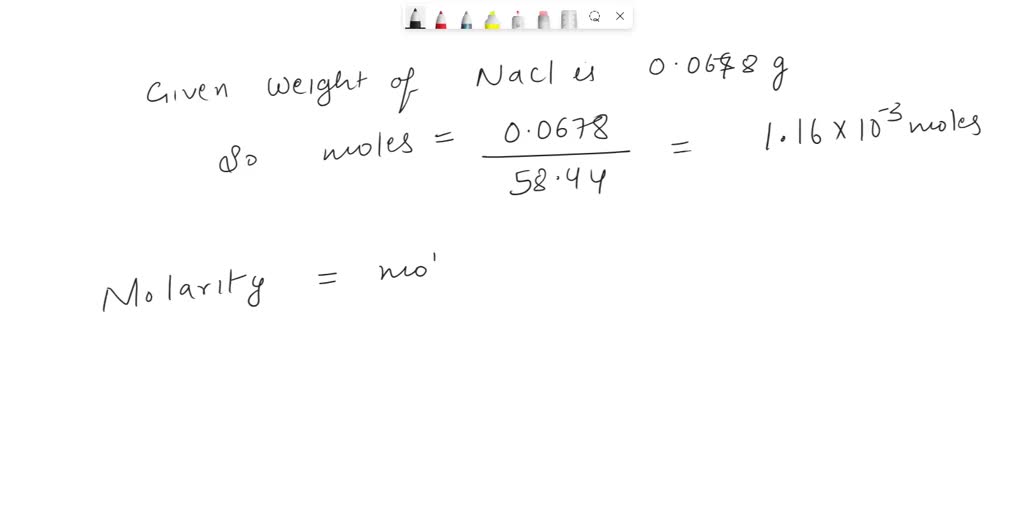 Given weight of Nacl is 0.0678 g
So moles = 0.0678 / 58.44 = 1.16 × 10⁻³ moles
Molarity = mo